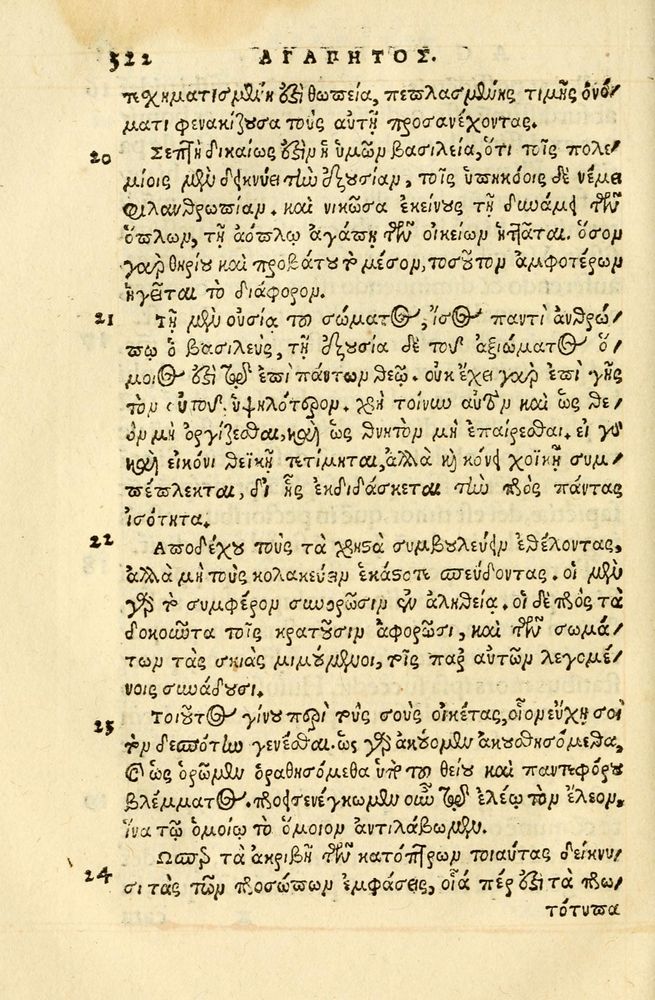 322 ΑΓΑΠΗΤΟΣ.
πεχηματισμένη ἐστὶ θωπεία, πεπλασμένης τιμῆς ὀνό/
ματι φενακίζουσα τοὺς αὐτῇ προσανέχοντας.
20 Σεπτὴ δικαίως ἐστὶν ἡ ὑμῶν βασιλεία, ὅτι τοῖς πολε/
μίοις μὲν δεικνύει τὴν ἐξουσίαν, τοῖς ὑπηκόοις δὲ νέμει
φιλανθρωπίαν. καὶ νικῶσα ἐκείνους τῇ δυνάμει τῶν
ὅπλων, τῇ ἀόπλῳ ἀγάπῃ τῶν οἰκείων ἡττᾶται. ὅσον
γὰρ θηρίου καὶ προβάτου τὸ μέσον, τοσοῦτον ἀμφοτέρων
ἡγεῖται τὸ διάφορον.
21 Τῇ μὲν οὐσίᾳ τοῦ σώματος, ἴσος παντὶ ἀνθρώ/
πῳ ὁ βασιλεύς, τῇ ἐξουσίᾳ δὲ τοῦ ἀξιώματος ὅ/
μοιός ἐστι τῷ ἐπὶ πάντων θεῷ. οὐκ ἔχει γὰρ ἐπὶ γῆς
τὸν αὐτοῦ ὑψηλότερον. χρὴ τοίνυν αὐτὸν καὶ ὡς θε/
ὸν μὴ ὀργίζεσθαι, καὶ ὡς θνητὸν μὴ ἐπαίρεσθαι. εἰ γὰρ
καὶ εἰκόνι θεϊκῇ τετίμηται, ἀλλὰ καὶ κόνει χοϊκῇ συμ/
πέπλεκται, δι' ἧς ἐκδιδάσκεται τὴν πρὸς πάντας
ἰσότητα.
22 Ἀποδέχου τοὺς τὰ χρηστὰ συμβουλεύειν ἐθέλοντας,
ἀλλὰ μὴ τοὺς κολακεύειν ἑκάστοτε σπεύδοντας. οἱ μὲν
γὰρ τὸ συμφέρον συνορῶσιν ἐν ἀληθείᾳ. οἱ δὲ πρὸς τὰ
δοκοῦντα τοῖς κρατοῦσιν ἀφορῶσι, καὶ τῶν σωμά/
των τὰς σκιὰς μιμούμενοι, τοῖς παρ' αὐτῶν λεγομέ/
νοις συνᾴδουσι.
23 Τοιοῦτος γίνου περὶ τοὺς σοὺς οἰκέτας, οἷον εὔχῃ σοὶ
τὸν δεσπότην γενέσθαι. ὡς γὰρ ἀκούομεν ἀκουσθησόμεθα,
καὶ ὡς ὁρῶμεν ὁραθησόμεθα ὑπὸ τοῦ θείου καὶ παντεφόρου
βλέμματος. προσενέγκωμεν οὖν τῷ ἐλέῳ τὸν ἔλεον,
ἵνα τῷ ὁμοίῳ τὸ ὅμοιον ἀντιλάβωμεν.
24 Ὥσπερ τὰ ἀκριβῆ τῶν κατόπτρων τοιαύτας δείκνυ/
σι τὰς τῶν προσώπων ἐμφάσεις, οἷά πέρ ἐστι τὰ πρω/
τότυπα